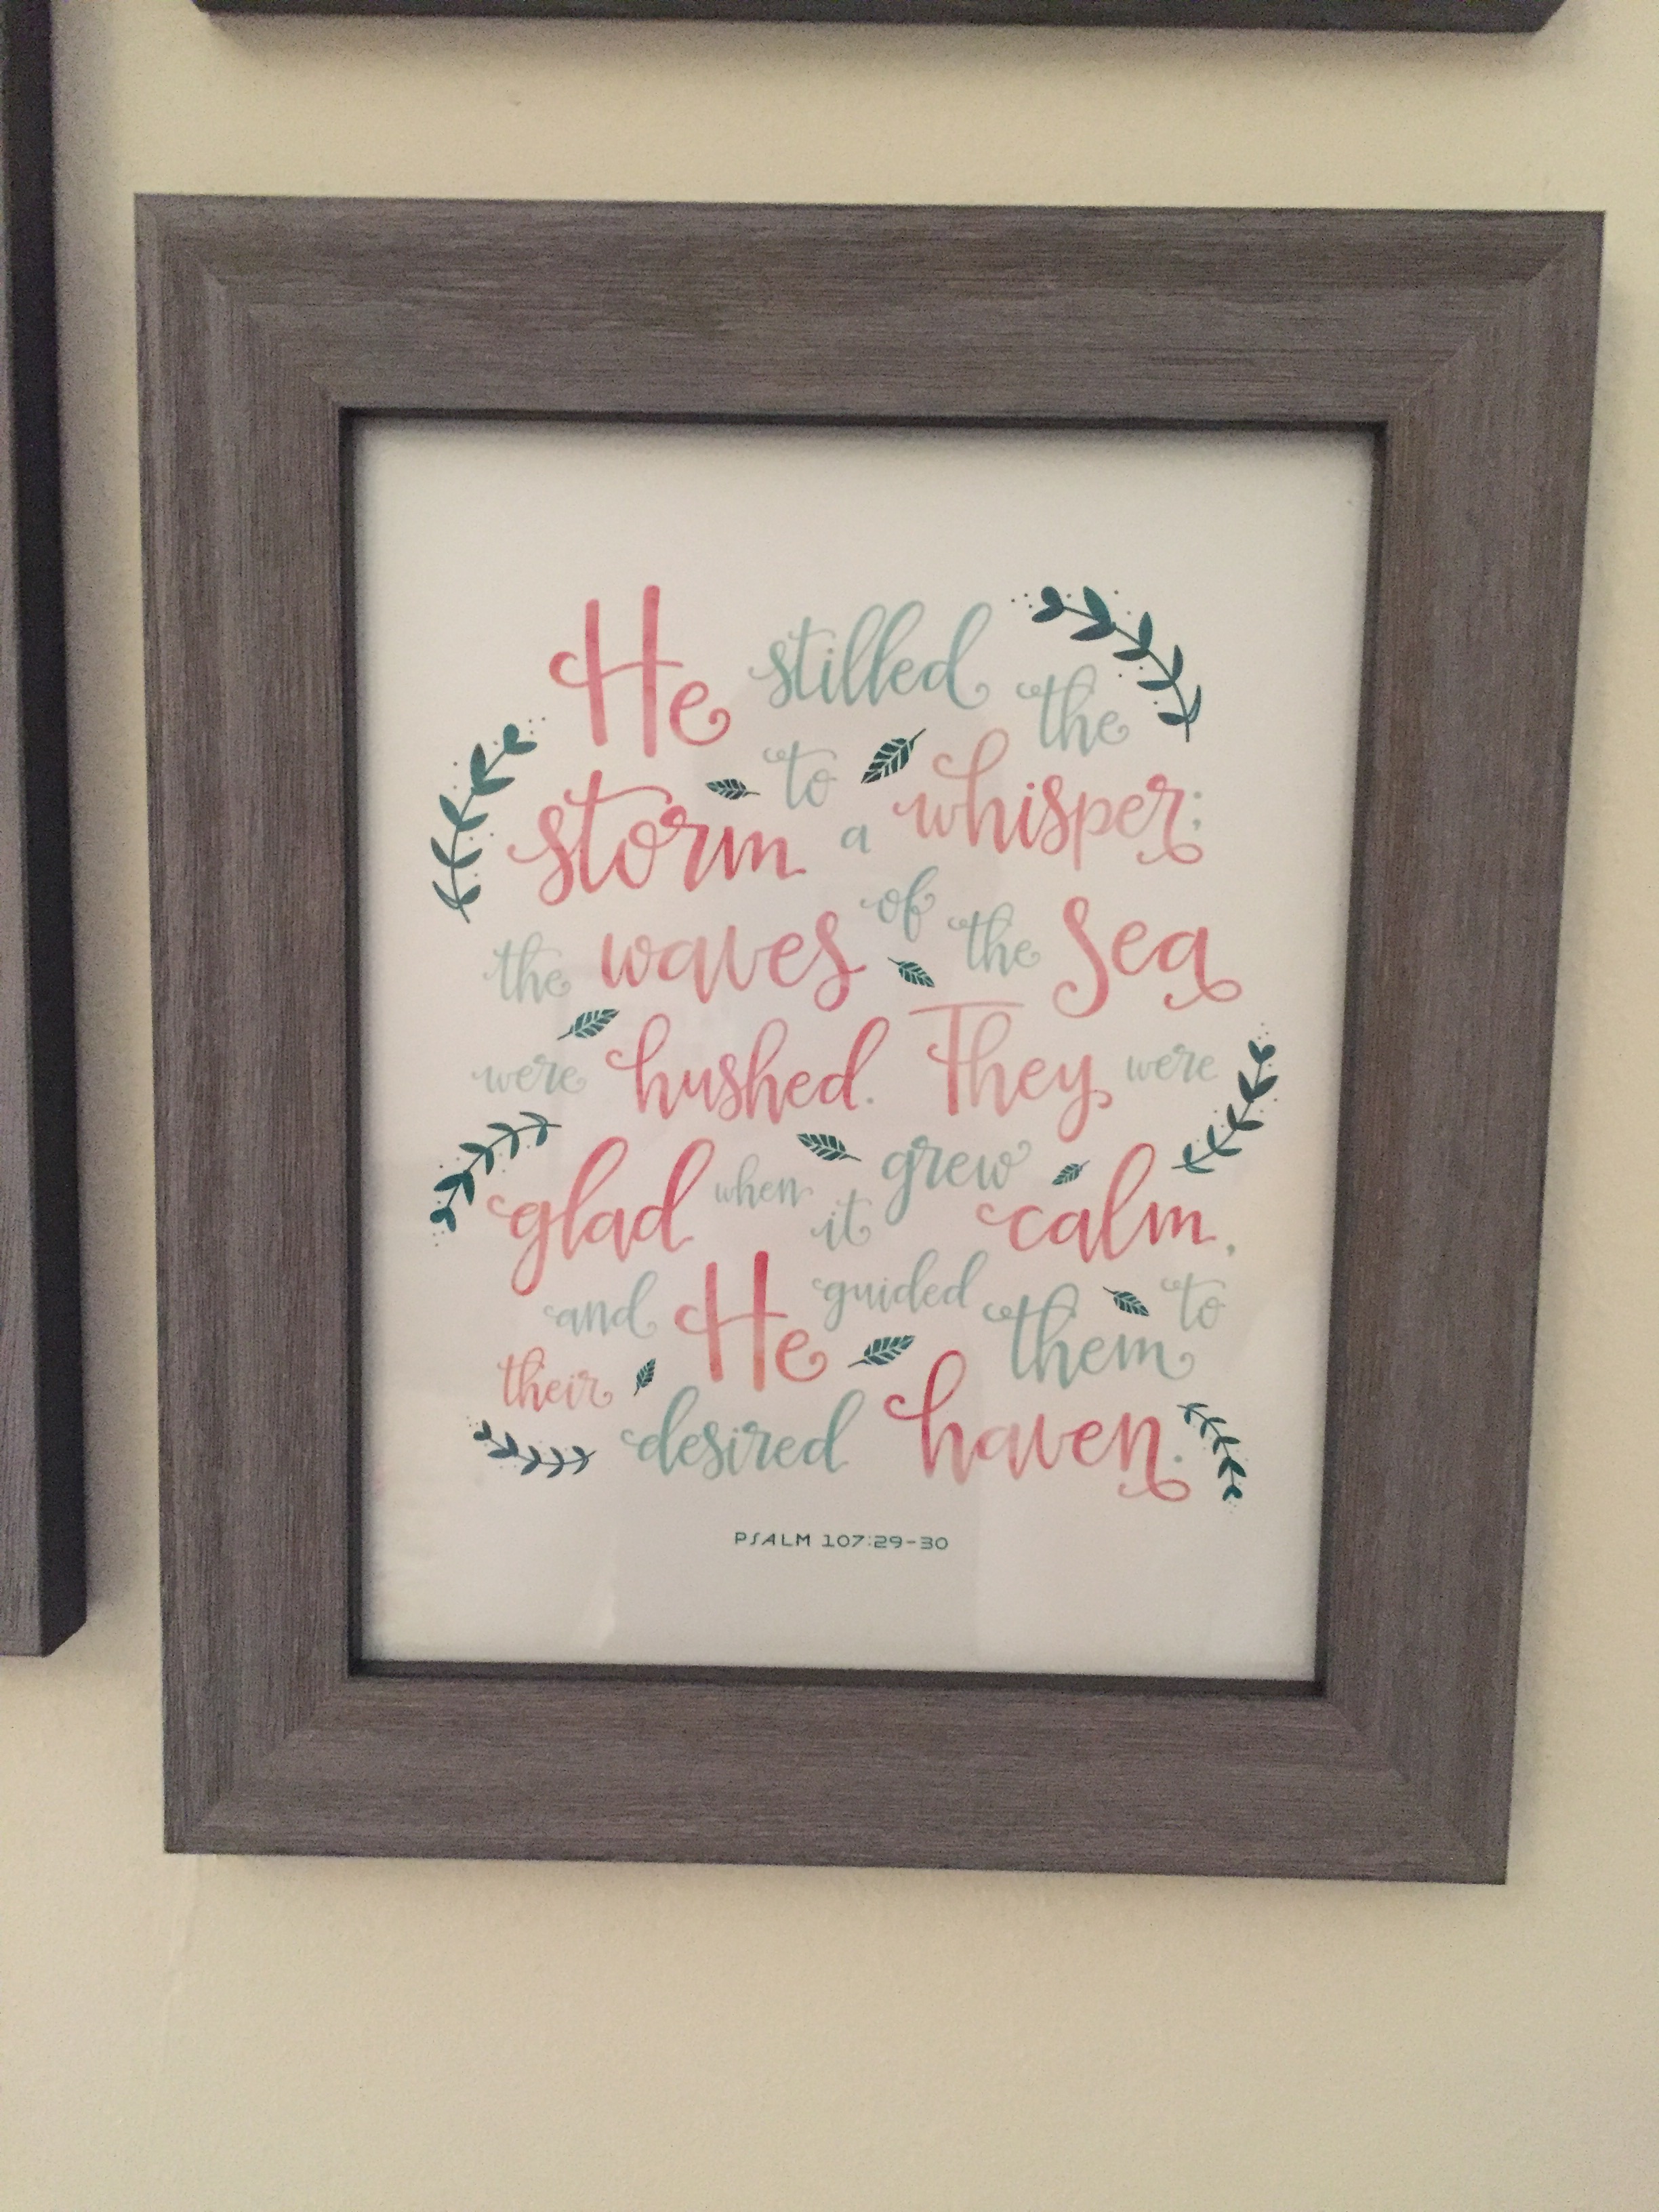 He stilled the
storm to a whisper;
the waves of the Sea
were hushed. They were
glad when it grew calm,
and He guided them to
their desired haven.
PSALM 107:29-30